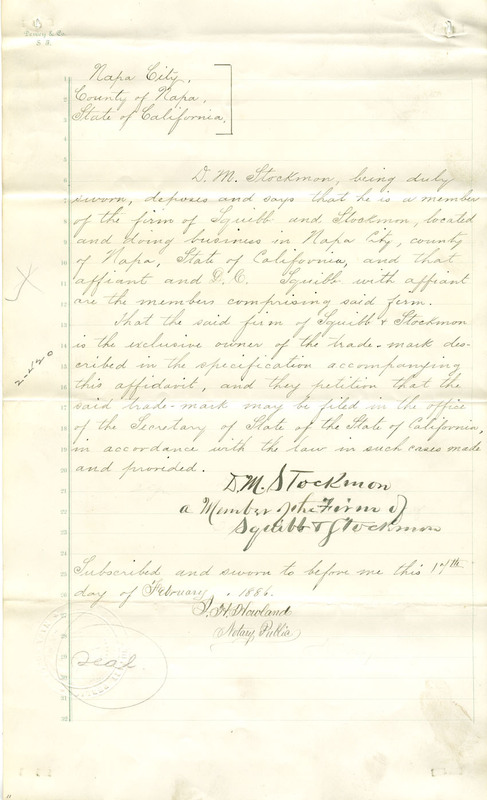 Napa City,
County of Napa,
State of California.
D. M. Stockmon, being duly
sworn, deposes and says that he is a member
of the firm of Squibb and Stockmon, located
and doing business in Napa City, county
of Napa, State of California, and that
affiant and D. C. Squibb with affiant
are the members comprising said firm.
That the said firm of Squibb & Stockmon
is the exclusive owner of the trade-mark des-
cribed in the specification accompanying
this affidavit, and they petition that the
said trade-mark may be filed in the office
of the Secretary of State of the State of California,
in accordance with the law in such cases made
and provided.
D. M. Stockmon
a Member of the Firm of
Squibb & Stockmon
Subscribed and sworn to before me this 17th
day of February, 1886.
Howland
Notary Public
seal
1
2
3
4
5
6
7
8
9
10
11
12
13
14
15
16
17
18
19
20
21
22
23
24
25
26
27
28
29
30
31
32